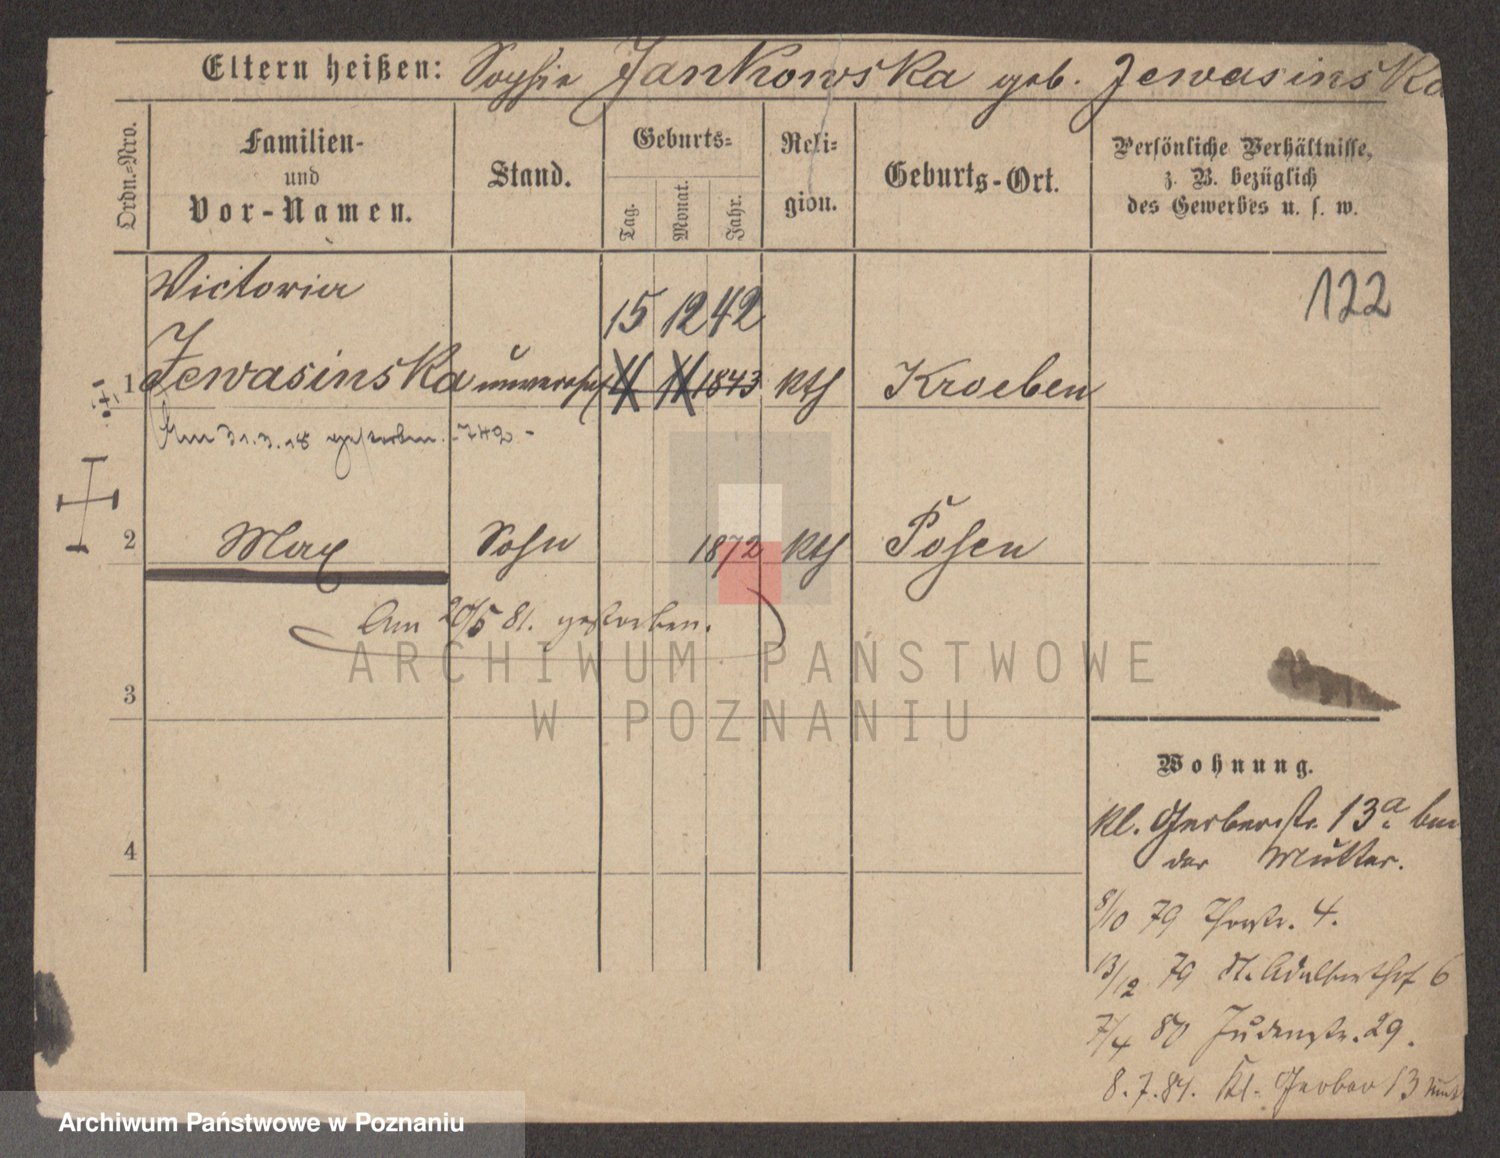 Eltern heißen: Sophie Jankowska geb. Jewasinska
Ordn.-Nro.
Familien-
und
Vor-Namen.
Stand.
Geburts-
Tag.
Monat.
Jahr.
Reli-
gion.
Geburts-Ort.
Persönliche Verhältnisse,
z. B. bezüglich
des Gewerbes u. s. w.
122
Victoria
15 12 42
1 Jewasinska unverehe 11 11 1843 kth Kroeben
Am 31.3.18 gestorben. -742-
2 Max Sohn 1872 kth Posen
Am 20/5 81. gestorben.
3
4
Wohnung.
kl. Gerberstr. 13a bei
der Mutter.
8/10 79 Thorstr. 4.
13/12 79 St. Adalberthof 6
7/4 80 Judenstr. 29.
8.7.81. Kl. Gerber 13
ARCHIWUM PAŃSTWOWE
W POZNANIU
Archiwum Państwowe w Poznaniu